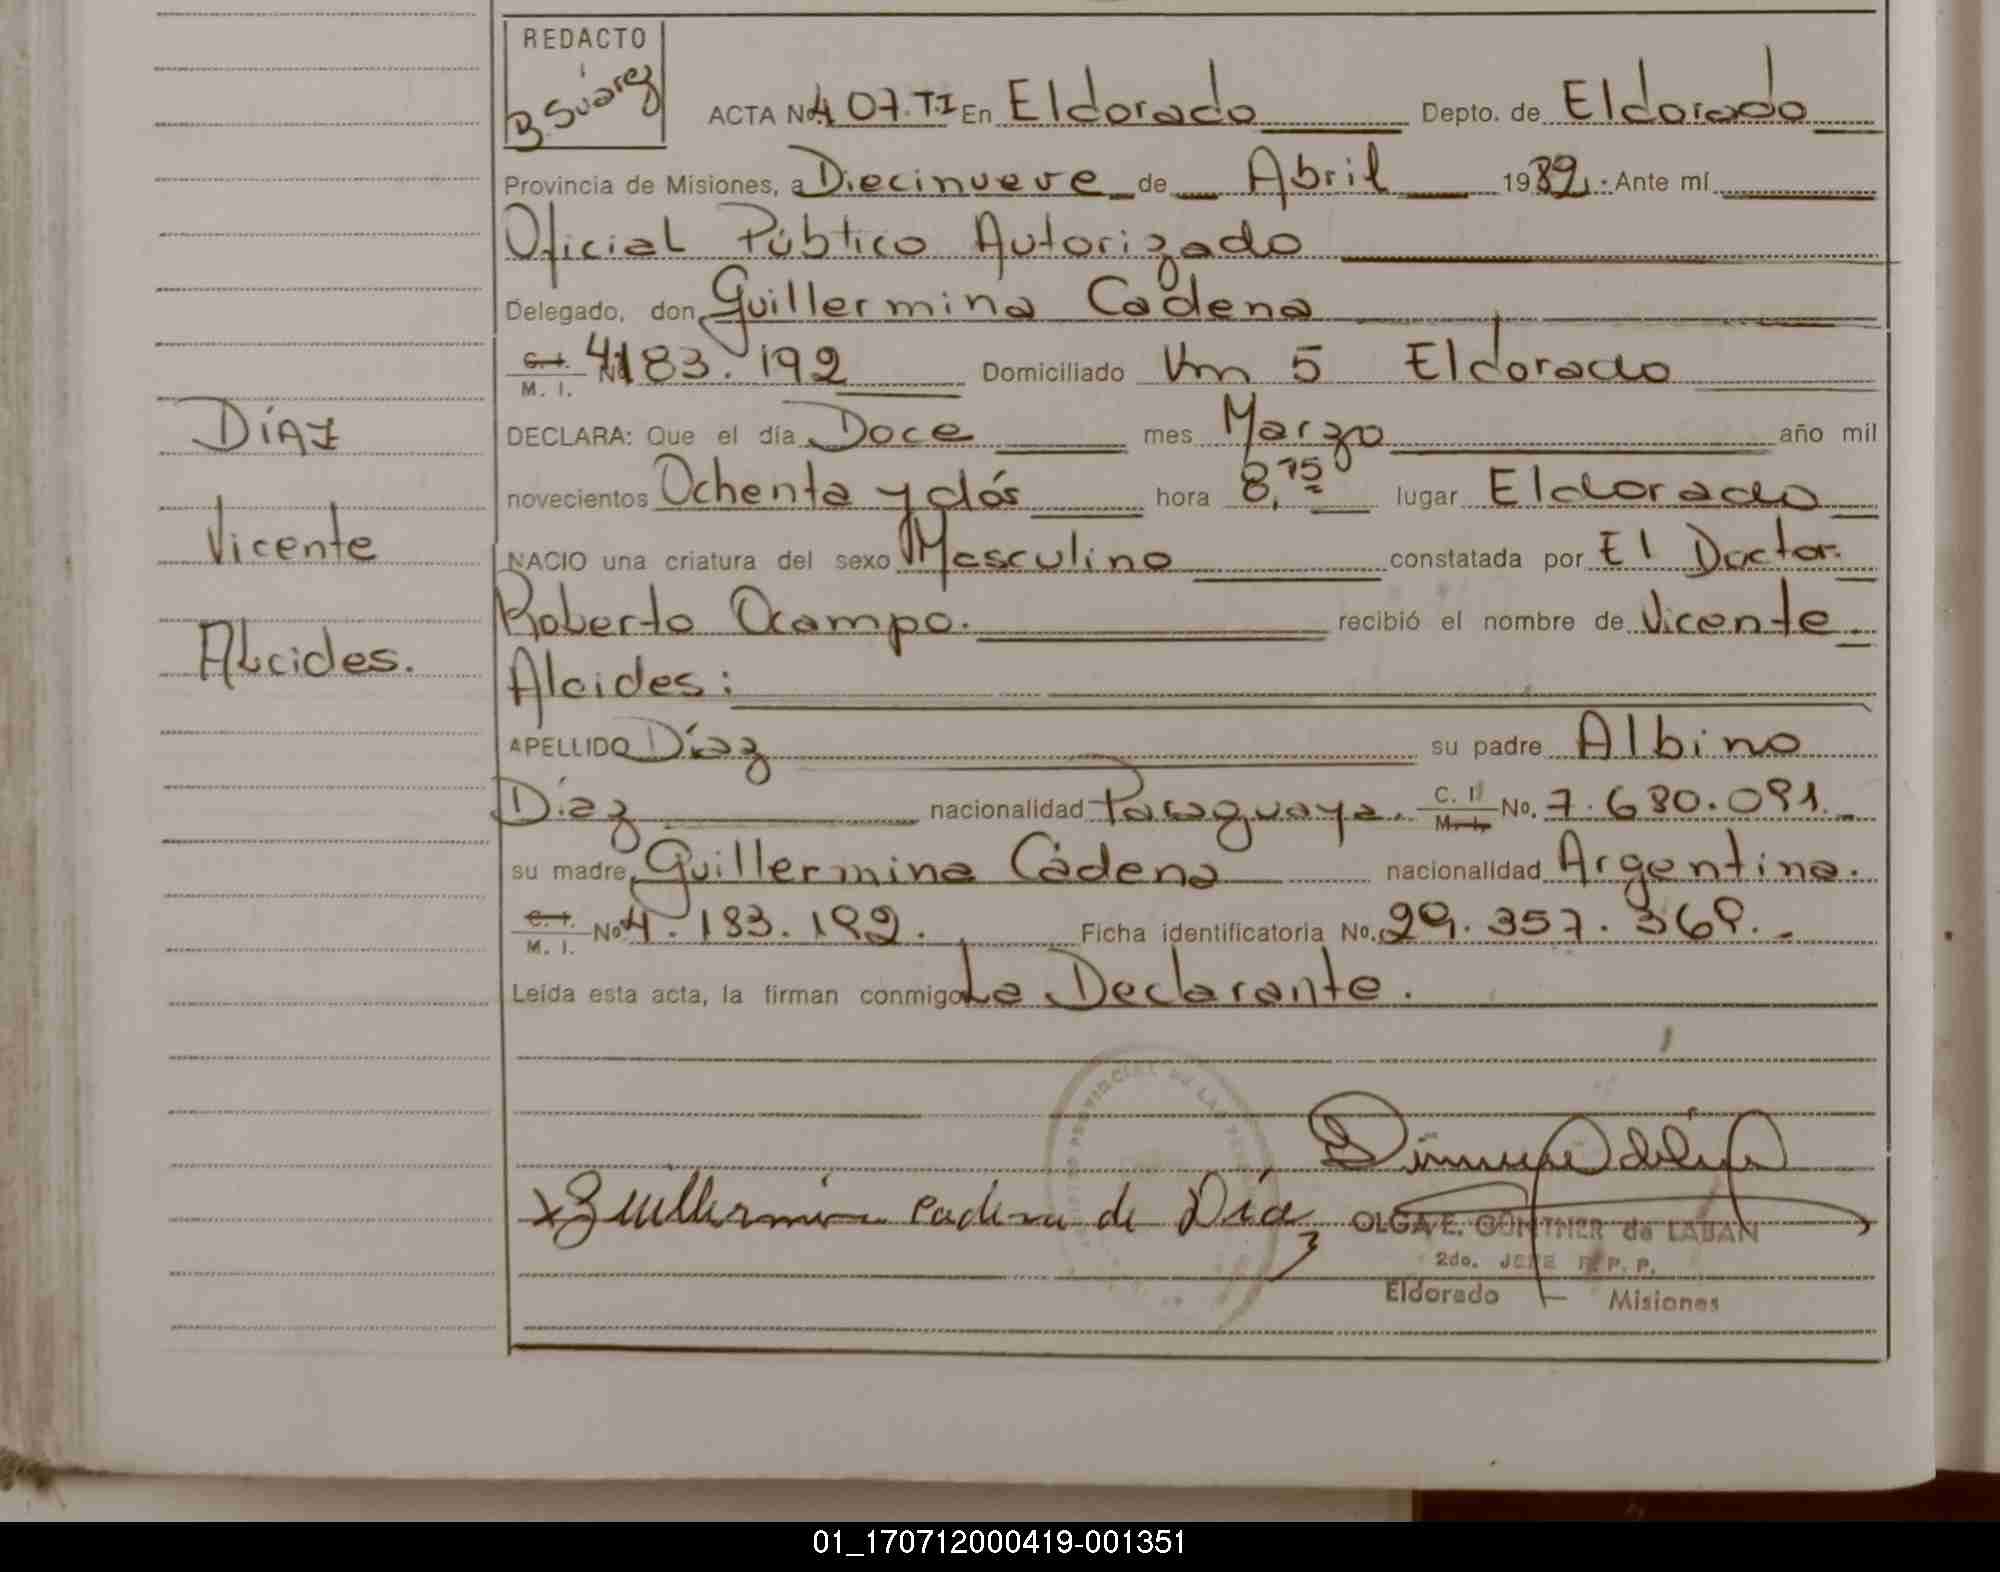 REDACTO
B. Suárez
ACTA No 407. T.I En Eldorado Depto. de Eldorado
Provincia de Misiones, a Diecinueve de Abril 1982. Ante mí
Oficial Público Autorizado
Delegado, don Guillermina Cadena
C. I. M. I. No 4183.192 Domiciliado Km 5 Eldorado
DECLARA: Que el día Doce mes Marzo año mil
Díaz
novecientos Ochenta y dós hora 8,15 lugar Eldorado
Vicente
NACIO una criatura del sexo Masculino constatada por El Doctor.
Roberto Ocampo. recibió el nombre de Vicente
Alcides.
Alcides:
APELLIDO Díaz su padre Albino
Díaz nacionalidad Paraguaya. C. I. M. I. No. 7.680.091.
su madre Guillermina Cadena nacionalidad Argentina.
C. I. M. I. No 4.183.192. Ficha identificatoria No. 29.357.368.
Leída esta acta, la firman conmigo La Declarante.
x Guillermina Cadena de Díaz
OLGA E. GÜNTHER de LABAN
2do. JEFE R. P. P.
Eldorado - Misiones
01_170712000419-001351